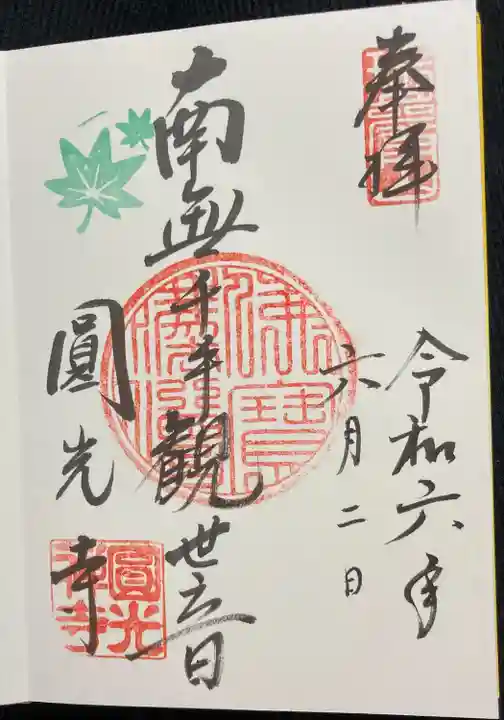 奉拝
令和六年
六月二日
南無千手観世音
圓光寺
佛法僧寶
圓光禅寺